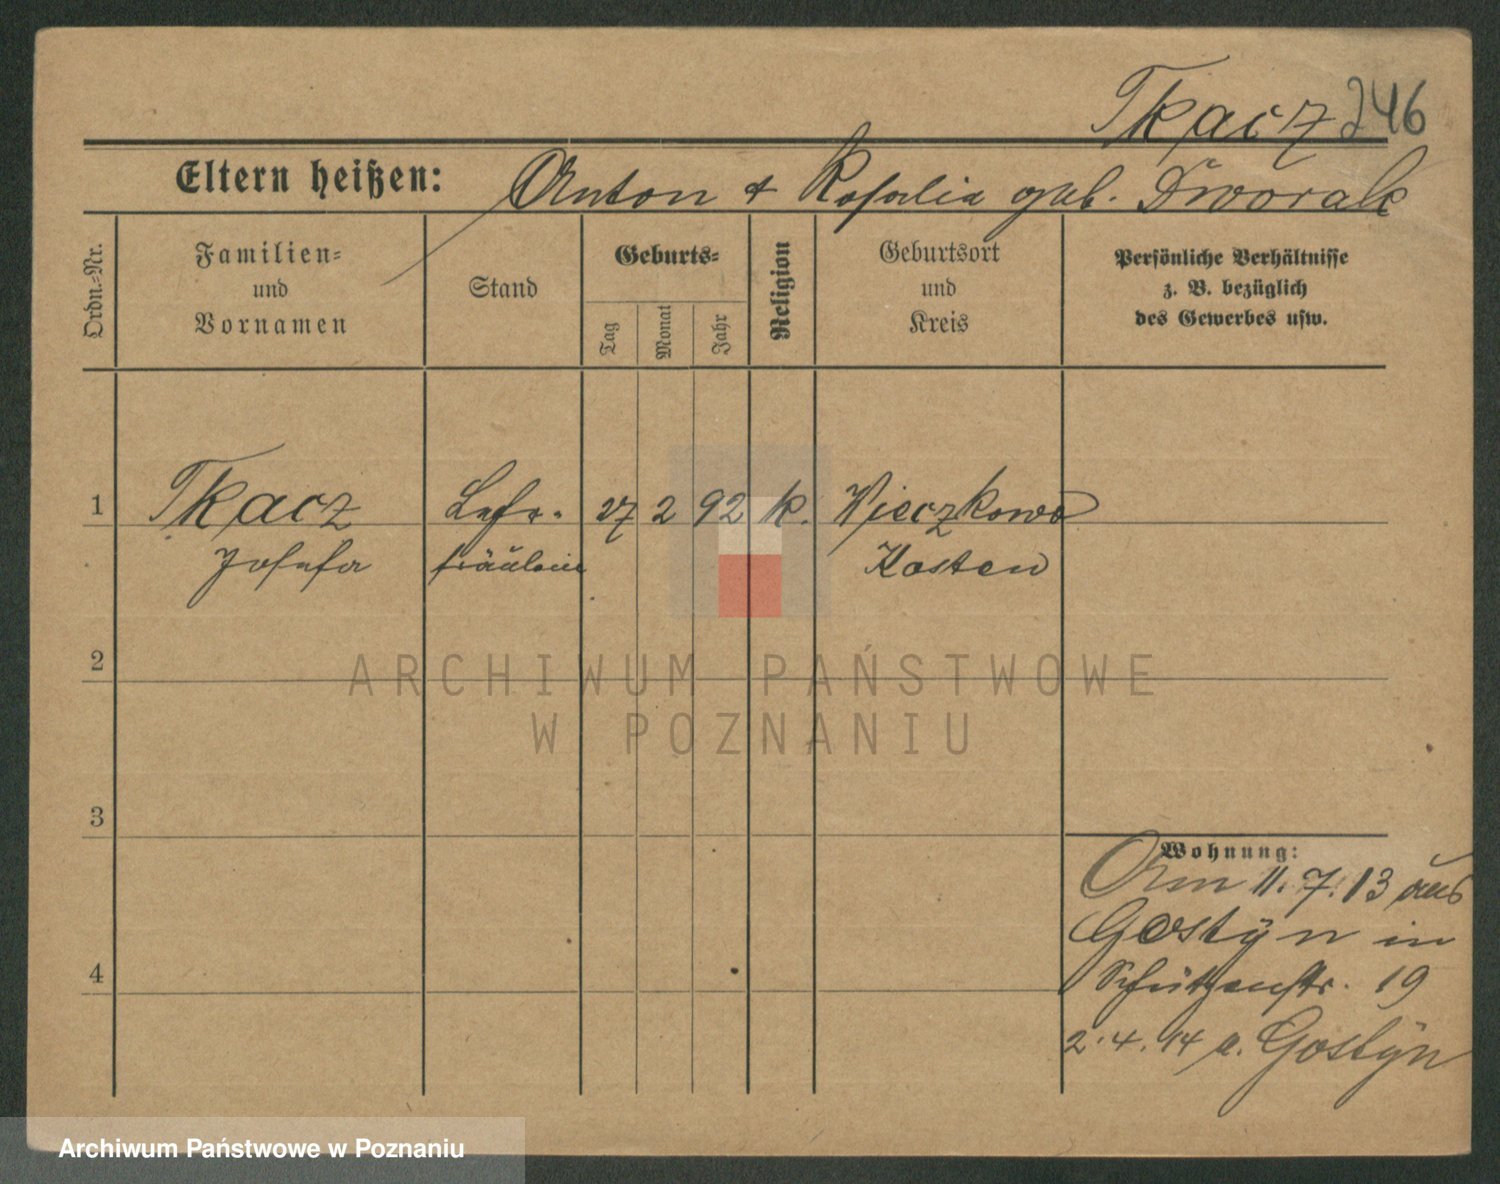 Tkacz 246
Eltern heißen: Anton & Rosalia geb. Dworak
Ordn.-Nr.
Familien-
und
Vornamen
Stand
Geburts-
Tag
Monat
Jahr
Religion
Geburtsort
und
Kreis
Persönliche Verhältnisse
z. B. bezüglich
des Gewerbes usw.
1 Tkacz Lehr- 27 2 92 k. Wieczkowo
Josefa fräulein Kosten
2
ARCHIWUM PAŃSTWOWE
W POZNANIU
3
Wohnung:
Am 11.7.13 aus
Gostÿn in
Schützenstr. 19
4
2.4.14 a. Gostÿn
Archiwum Państwowe w Poznaniu